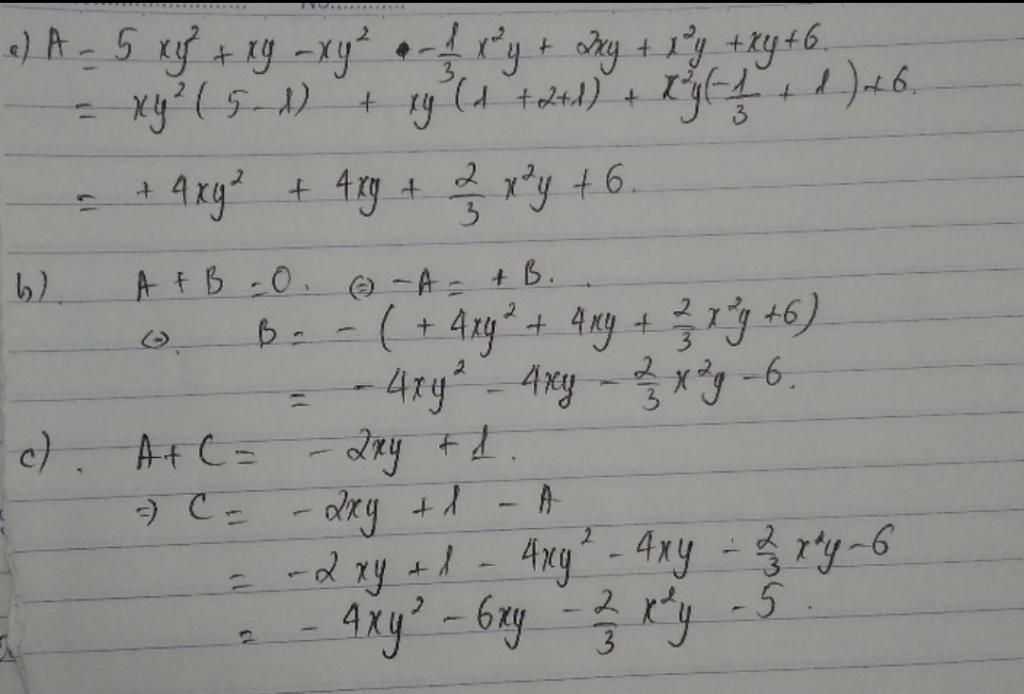 a) A = 5 xy² + xy - xy² - 1/3 x²y + 2xy + x²y + xy + 6.
= xy² ( 5 - 1 ) + xy ( 1 + 2 + 1 ) + x²y ( -1/3 + 1 ) + 6.
= + 4xy² + 4xy + 2/3 x²y + 6.
b). A + B = 0. ⇔ -A = + B.
⇔. B = - ( + 4xy² + 4xy + 2/3 x²y + 6 )
= - 4xy² - 4xy - 2/3 x²y - 6.
c). A + C = - 2xy + 1.
⇒ C = - 2xy + 1 - A
= - 2 xy + 1 - 4xy² - 4xy - 2/3 x²y - 6
= - 4xy² - 6xy - 2/3 x²y - 5.